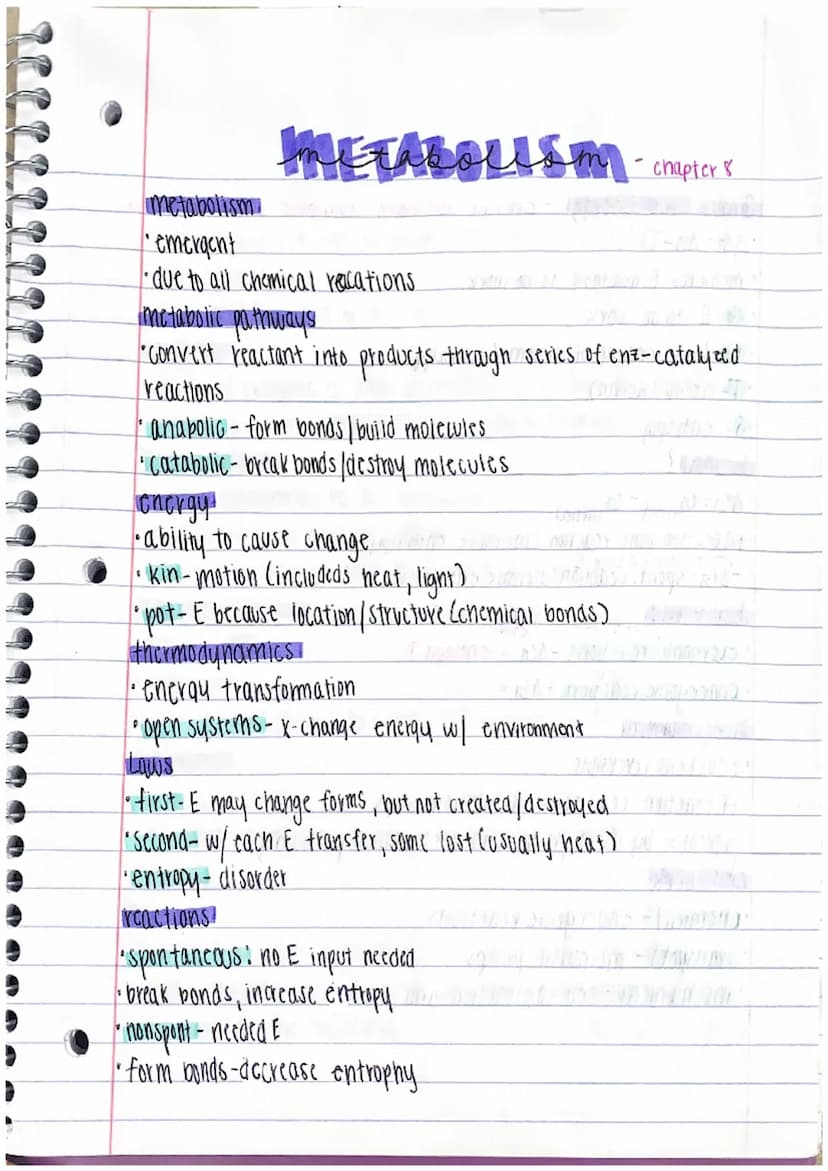 metabolism - chapter 8
metabolism
· emergent
· due to all chemical reacations
metabolic pathways
· convert reactant into products through series of enz-catalyzed
reactions
· anabolic - form bonds/build molecules
· catabolic - break bonds/destroy molecules
energy
· ability to cause change
· kin - motion (includeds heat, light)
· pot - E because location/structure (chemical bonds)
thermodynamics
· energy transformation
· open systems - x-change energy w/ environment
Laws
· first - E may change forms, but not created/destroyed
· second - w/ each E transfer, some lost (usually heat)
· entropy - disorder
reactions
· spontaneous: no E input needed
· break bonds, increase entropy
· nonspont - needed E
· form bonds - decrease entrophy